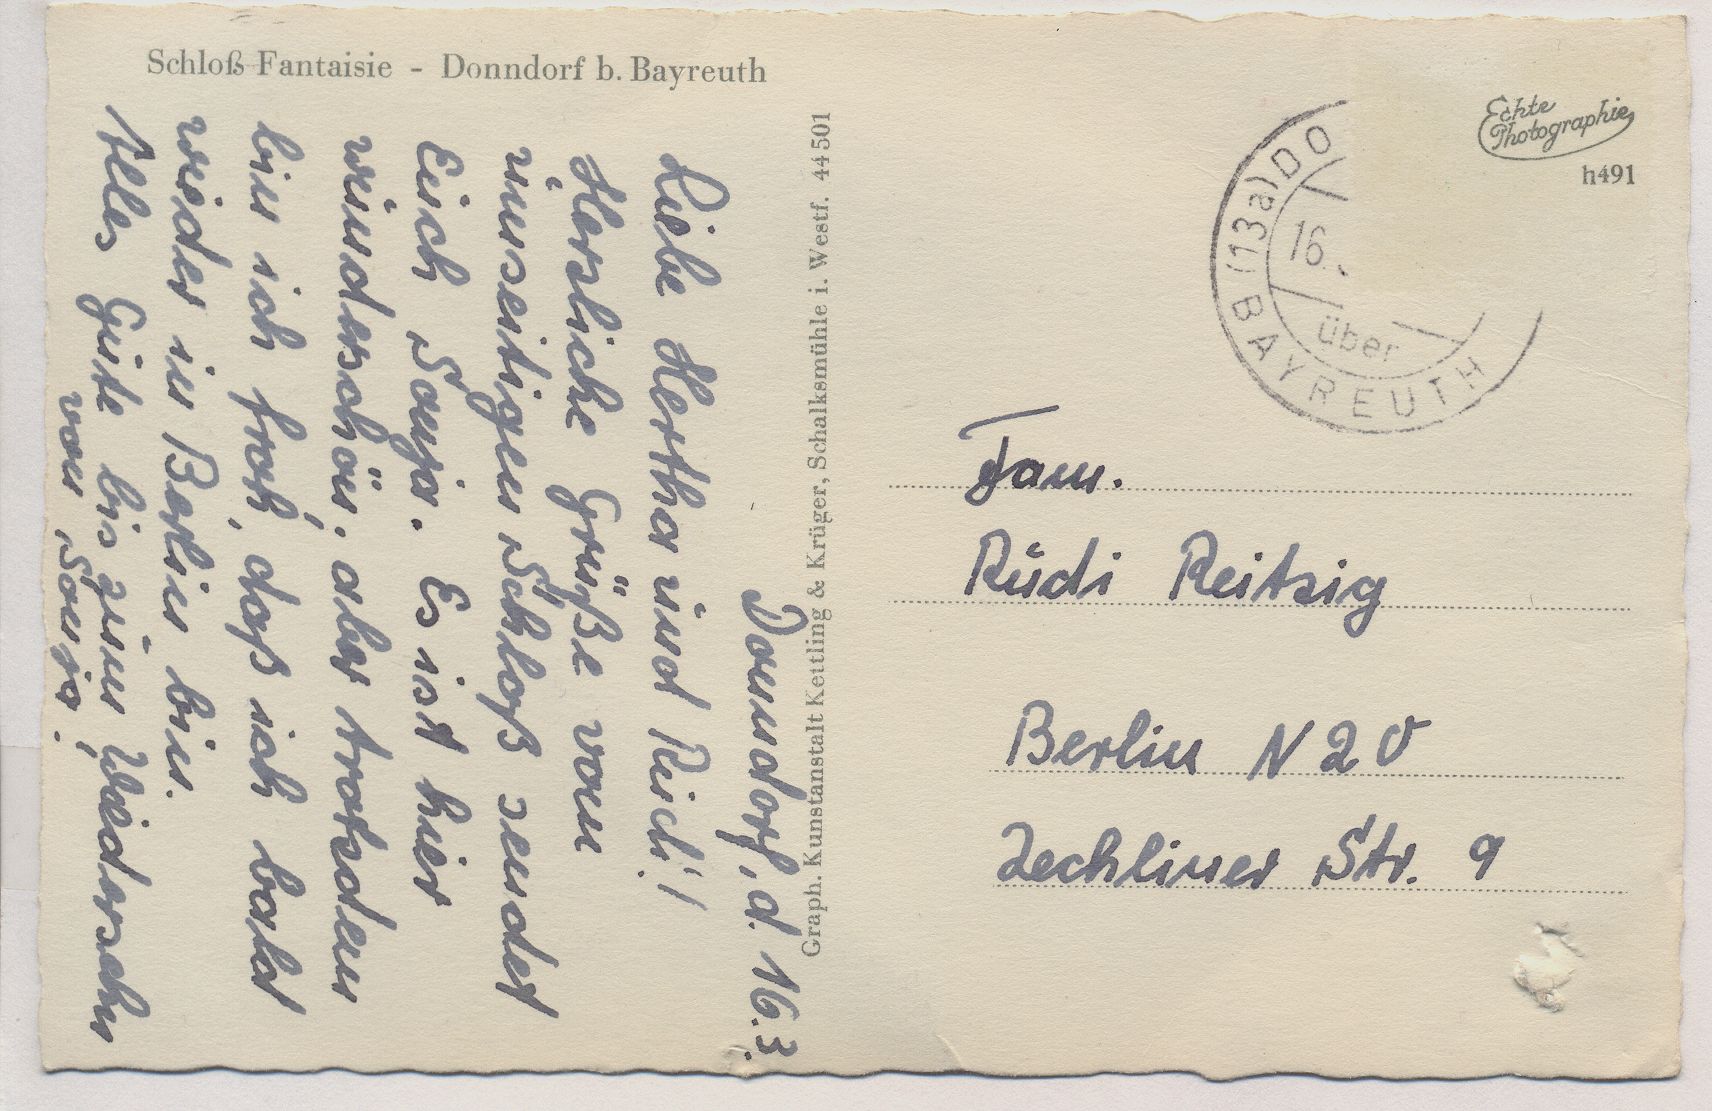 Schloß Fantaisie - Donndorf b. Bayreuth
Donndorf, d. 16.3.
Liebe Hertha und Rudi!
Herzliche Grüße vom
umseitigen Schloß sendet
Euch Sonja. Es ist hier
wunderschön, aber trotzdem
bin ich froh, daß ich bald
wieder in Berlin bin.
Alles Gute bis zum Wiedersehn
von Sonja.
Graph. Kunstanstalt Kettling & Krüger, Schalksmühle i. Westf. 44501
Echte
Photographie
h491
(13a) DO
16.
über
BAYREUTH
Fam.
Rudi Reitzig
Berlin N 20
Zechliner Str. 9